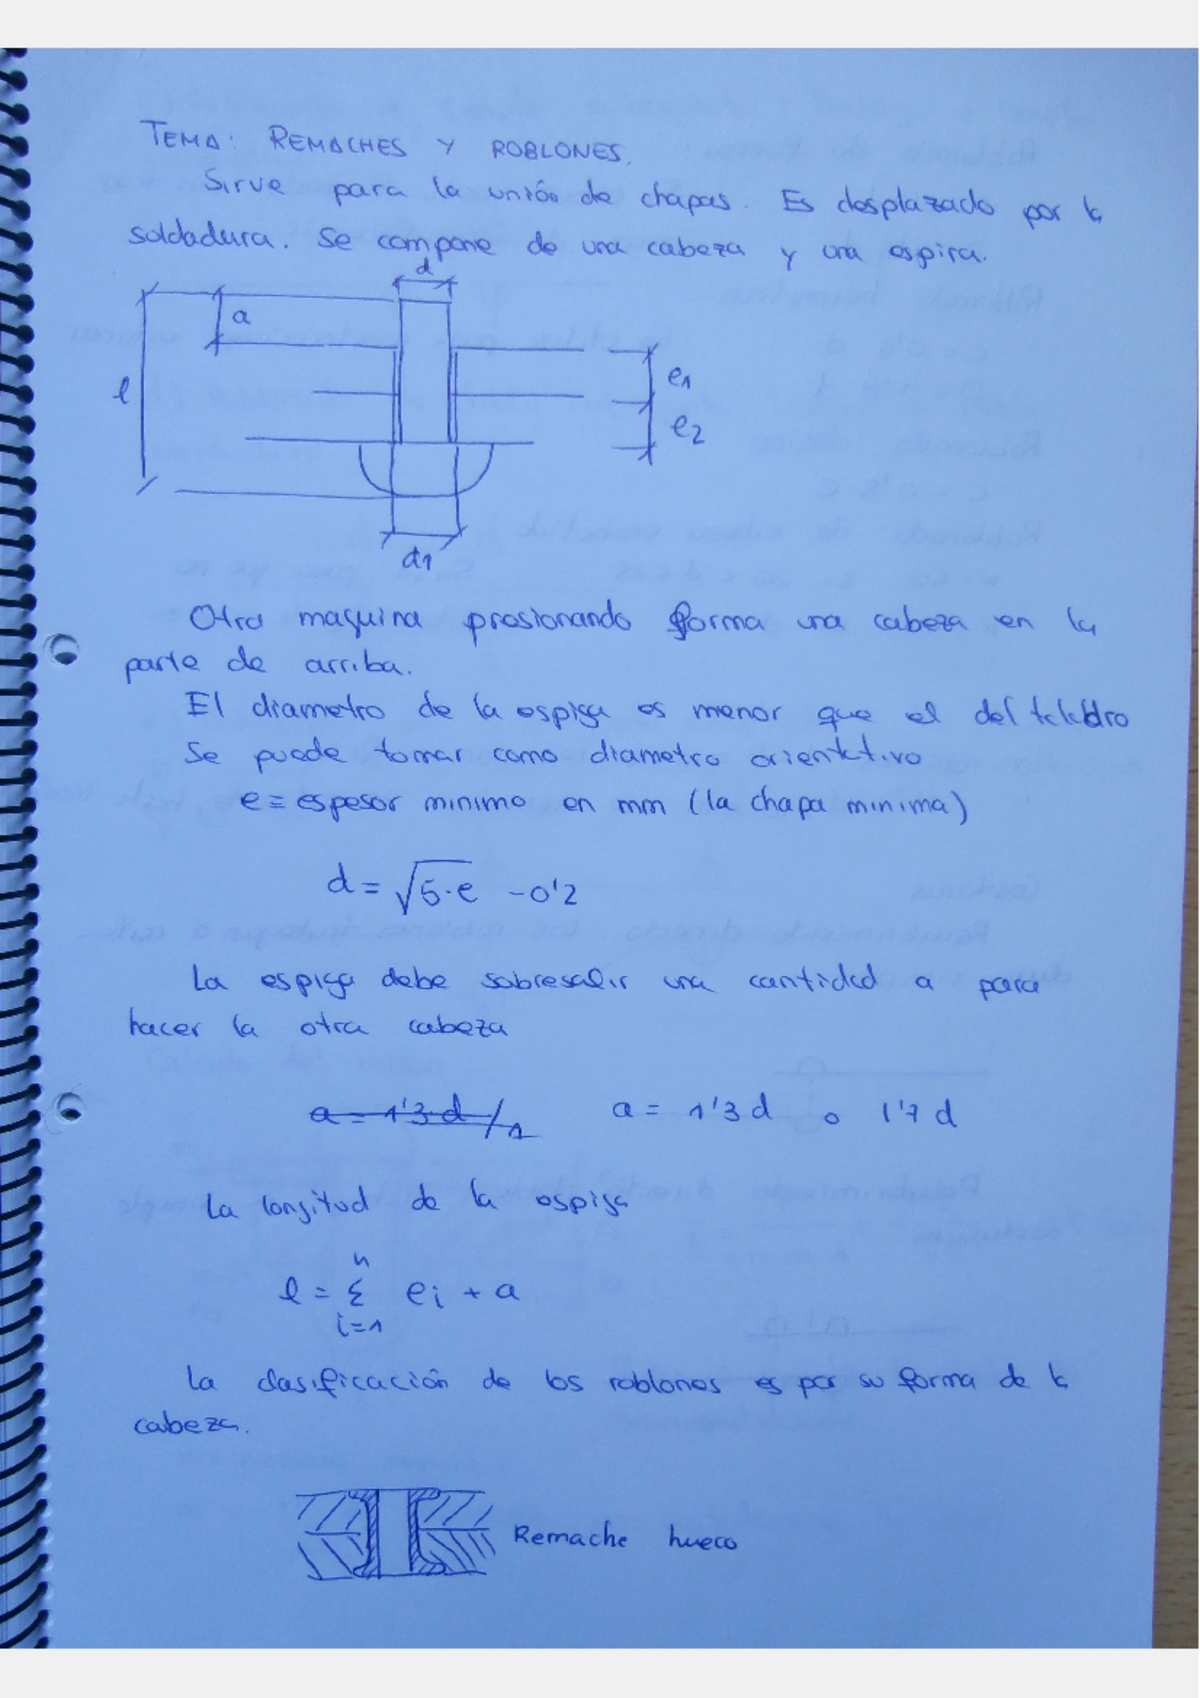 TEMA: REMACHES Y ROBLONES.
Sirve para la unión de chapas. Es desplazado por la
soldadura. Se compone de una cabeza y una espira.
d
a
l
e1
e2
d1
Otra maquina presionando forma una cabeza en la
parte de arriba.
El diametro de la espiga es menor que el del taladro
Se puede tomar como diametro orientativo
e = espesor minimo en mm (la chapa minima)
d = √5·e - 0'2
La espiga debe sobresalir una cantidad a para
hacer la otra cabeza
a = 1'3 d / 1 a = 1'3 d o 1'7 d
La longitud de la espiga
n
l = Σ ei + a
i=1
La clasificación de los roblones es por su forma de la
cabeza.
Remache hueco